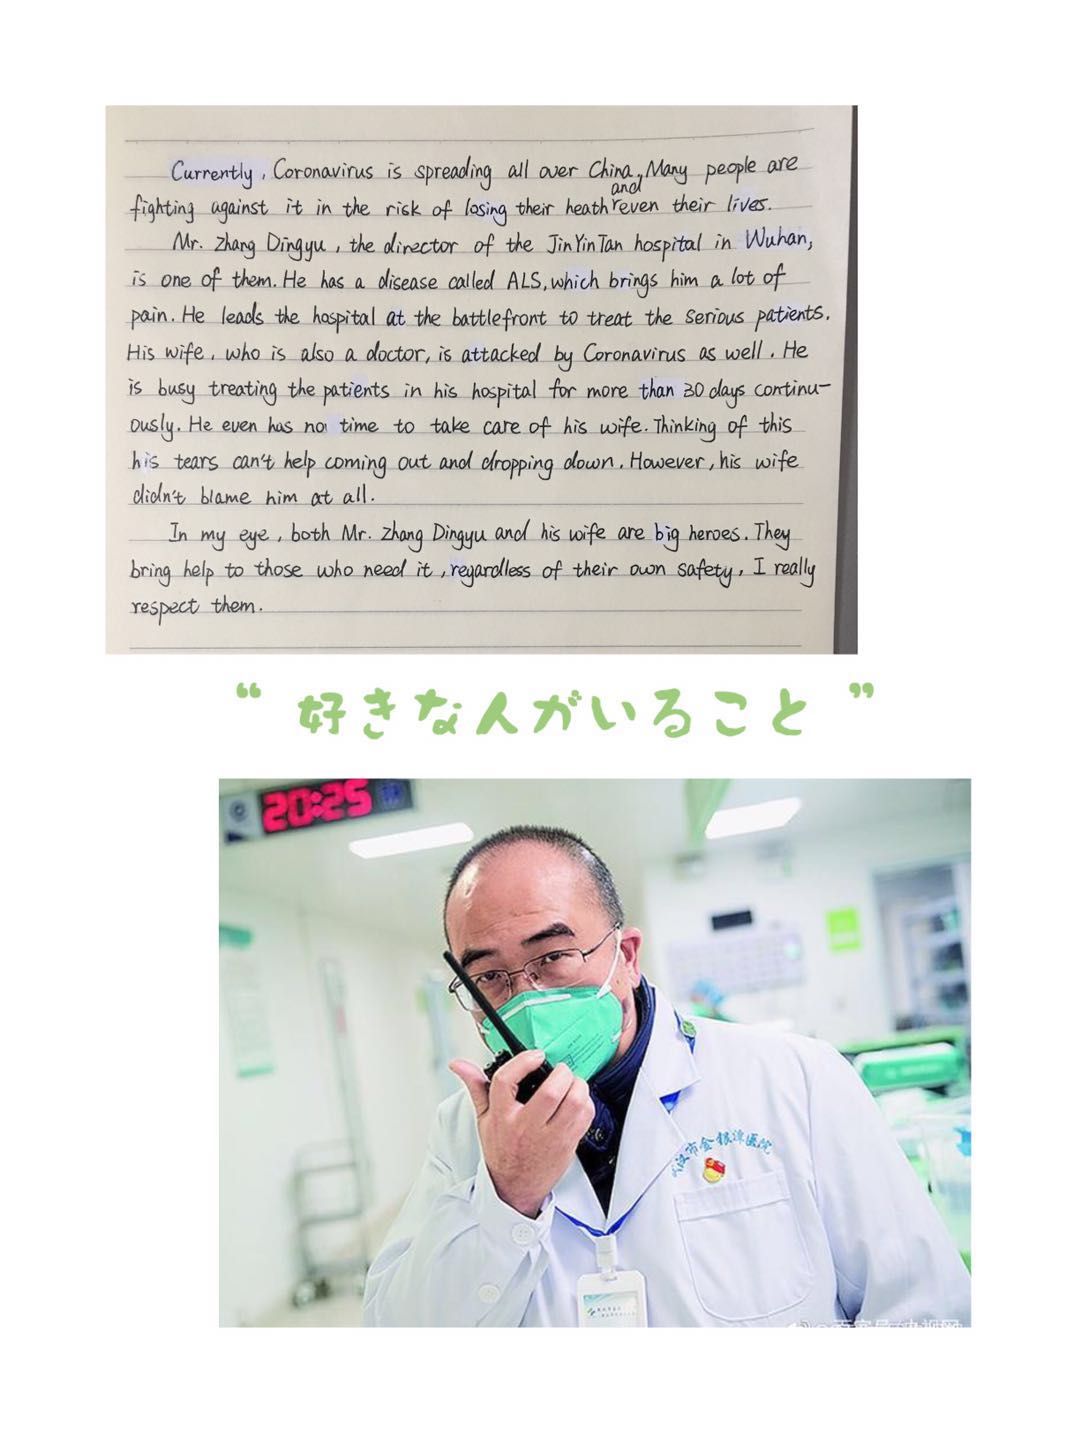 Currently, Coronavirus is spreading all over China, Many people are
fighting against it in the risk of losing their heath and even their lives.
Mr. Zhang Dingyu, the director of the JinYinTan hospital in Wuhan,
is one of them. He has a disease called ALS, which brings him a lot of
pain. He leads the hospital at the battlefront to treat the serious patients.
His wife, who is also a doctor, is attacked by Coronavirus as well. He
is busy treating the patients in his hospital for more than 30 days continu-
ously. He even has no time to take care of his wife. Thinking of this
his tears can't help coming out and dropping down. However, his wife
didn't blame him at all.
In my eye, both Mr. Zhang Dingyu and his wife are big heroes. They
bring help to those who need it, regardless of their own safety, I really
respect them.
“ 好きな人がいること ”
20:25
武汉市金银潭医院